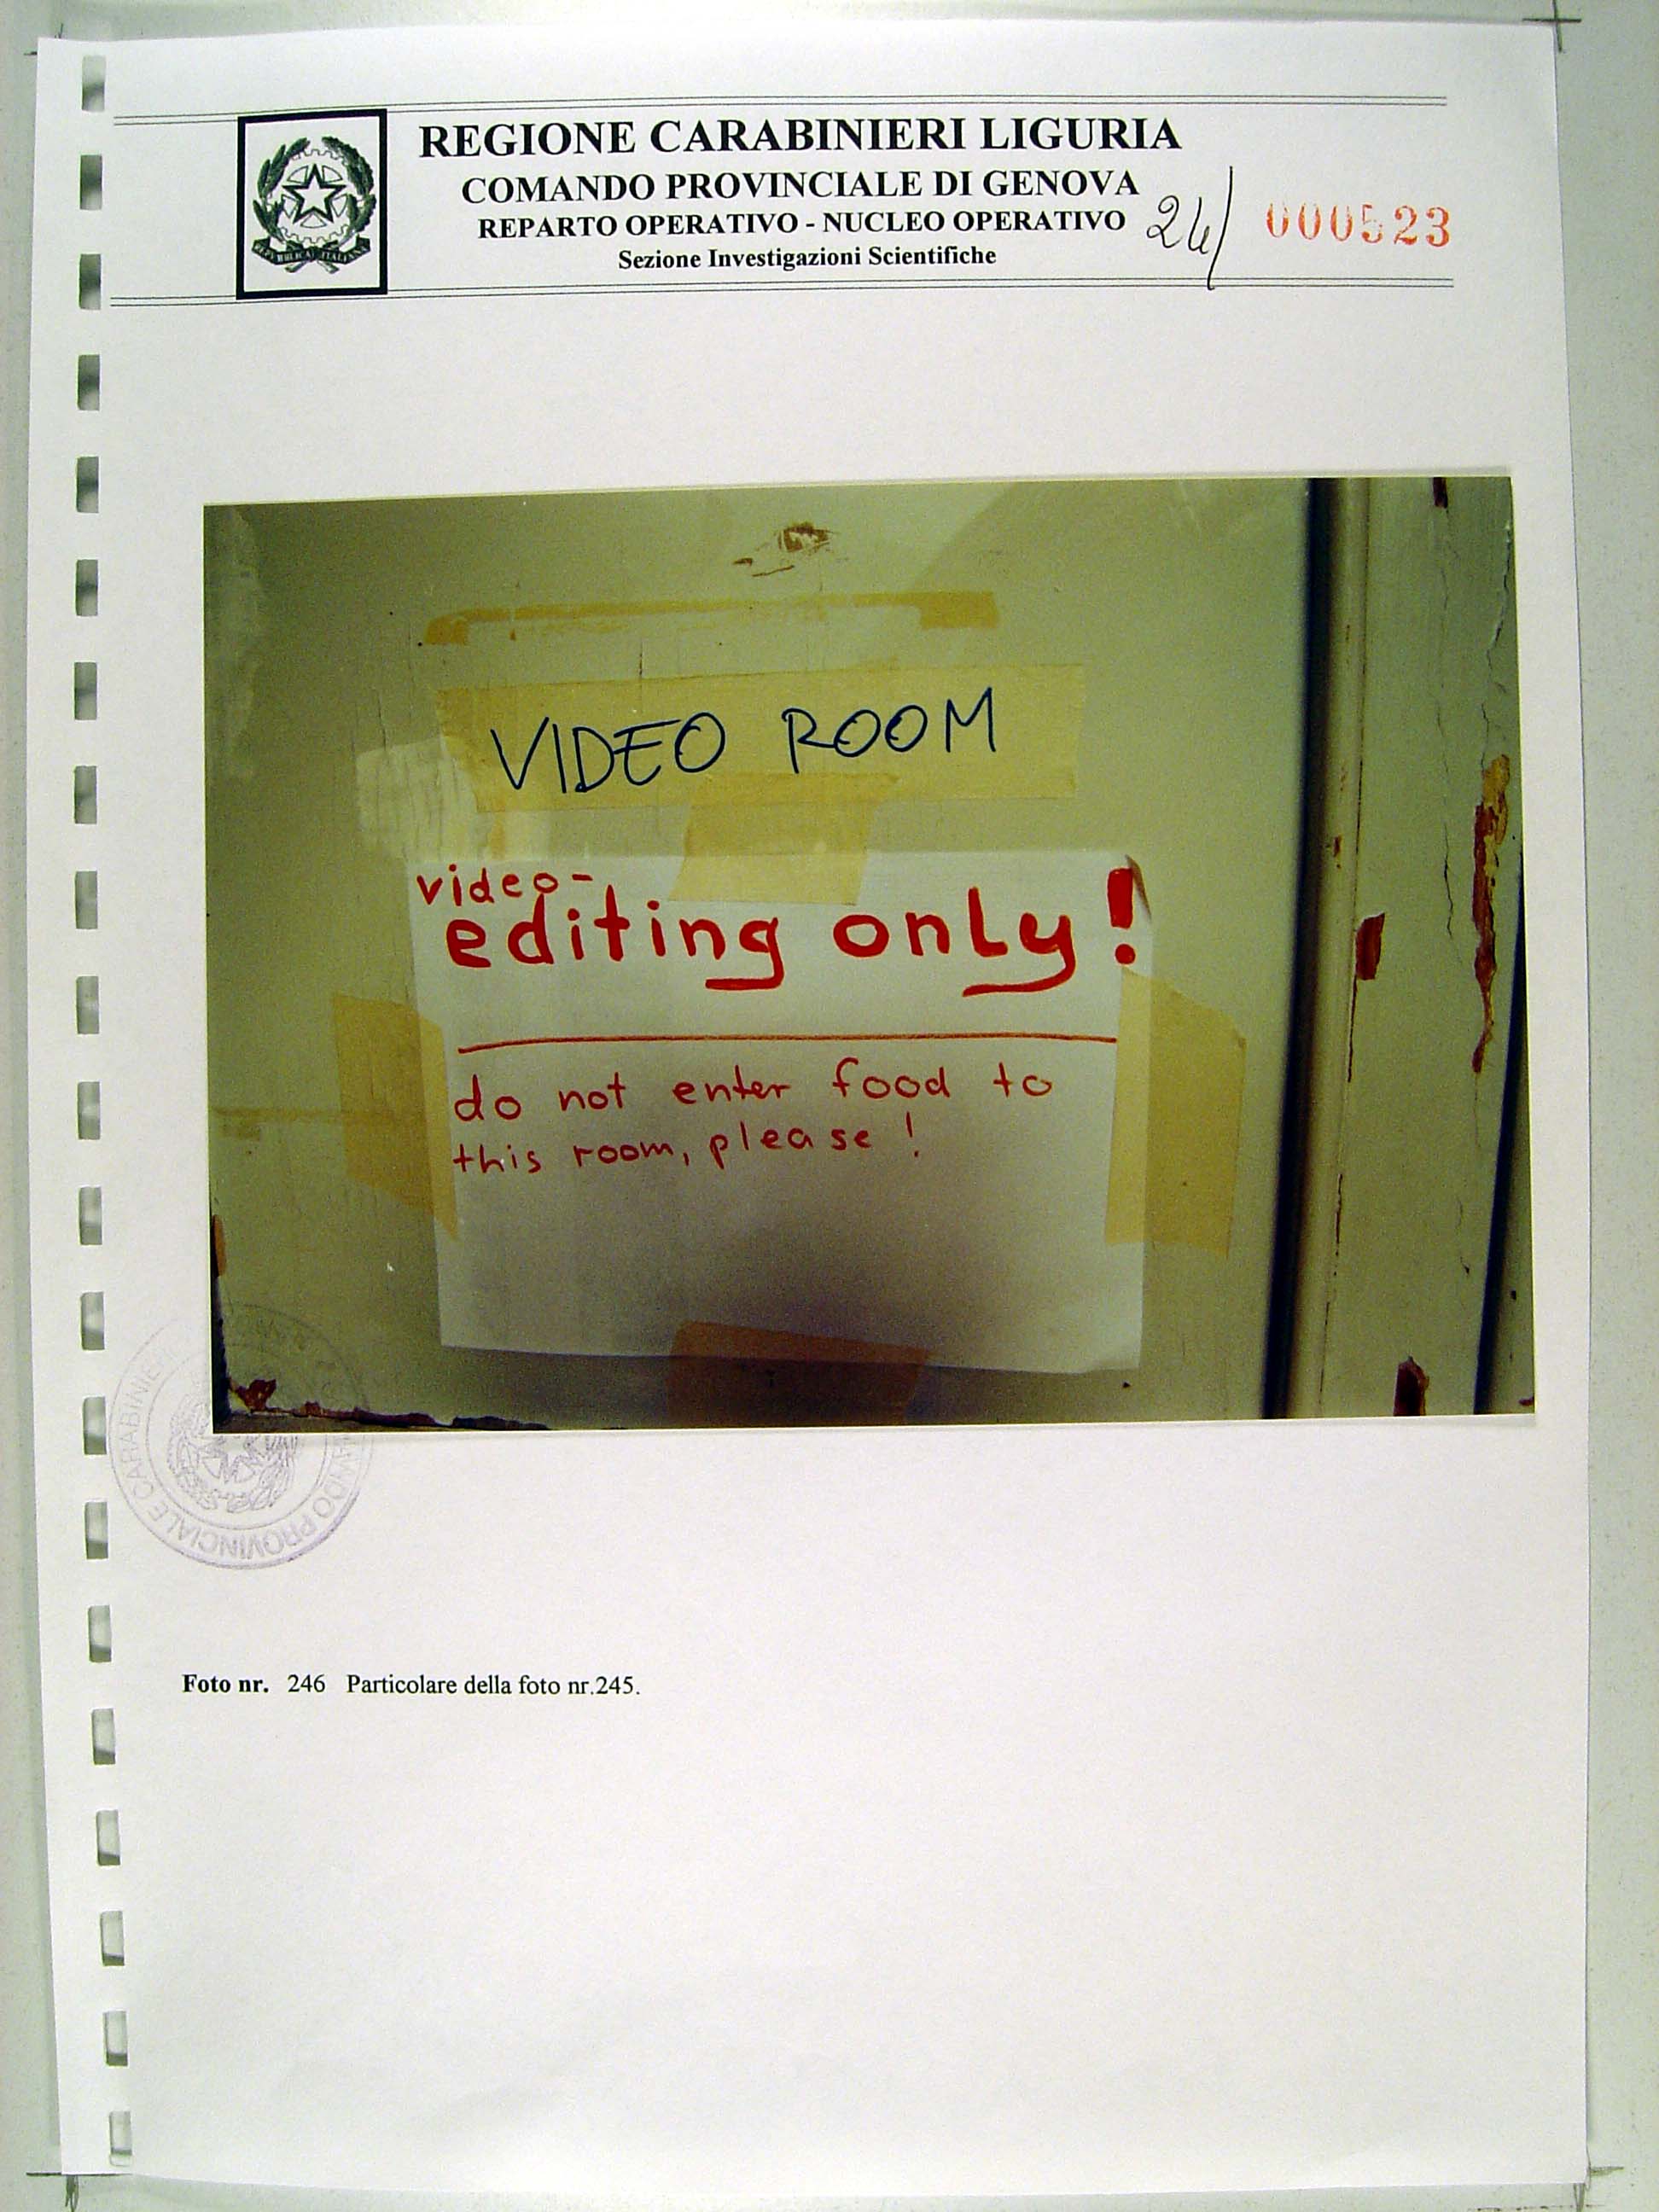 REGIONE CARABINIERI LIGURIA
COMANDO PROVINCIALE DI GENOVA
REPARTO OPERATIVO - NUCLEO OPERATIVO
Sezione Investigazioni Scientifiche
000523
VIDEO ROOM
video-
editing only!
do not enter food to
this room, please!
CARABINIERI
COMANDO PROVINCIALE
Foto nr. 246 Particolare della foto nr.245.